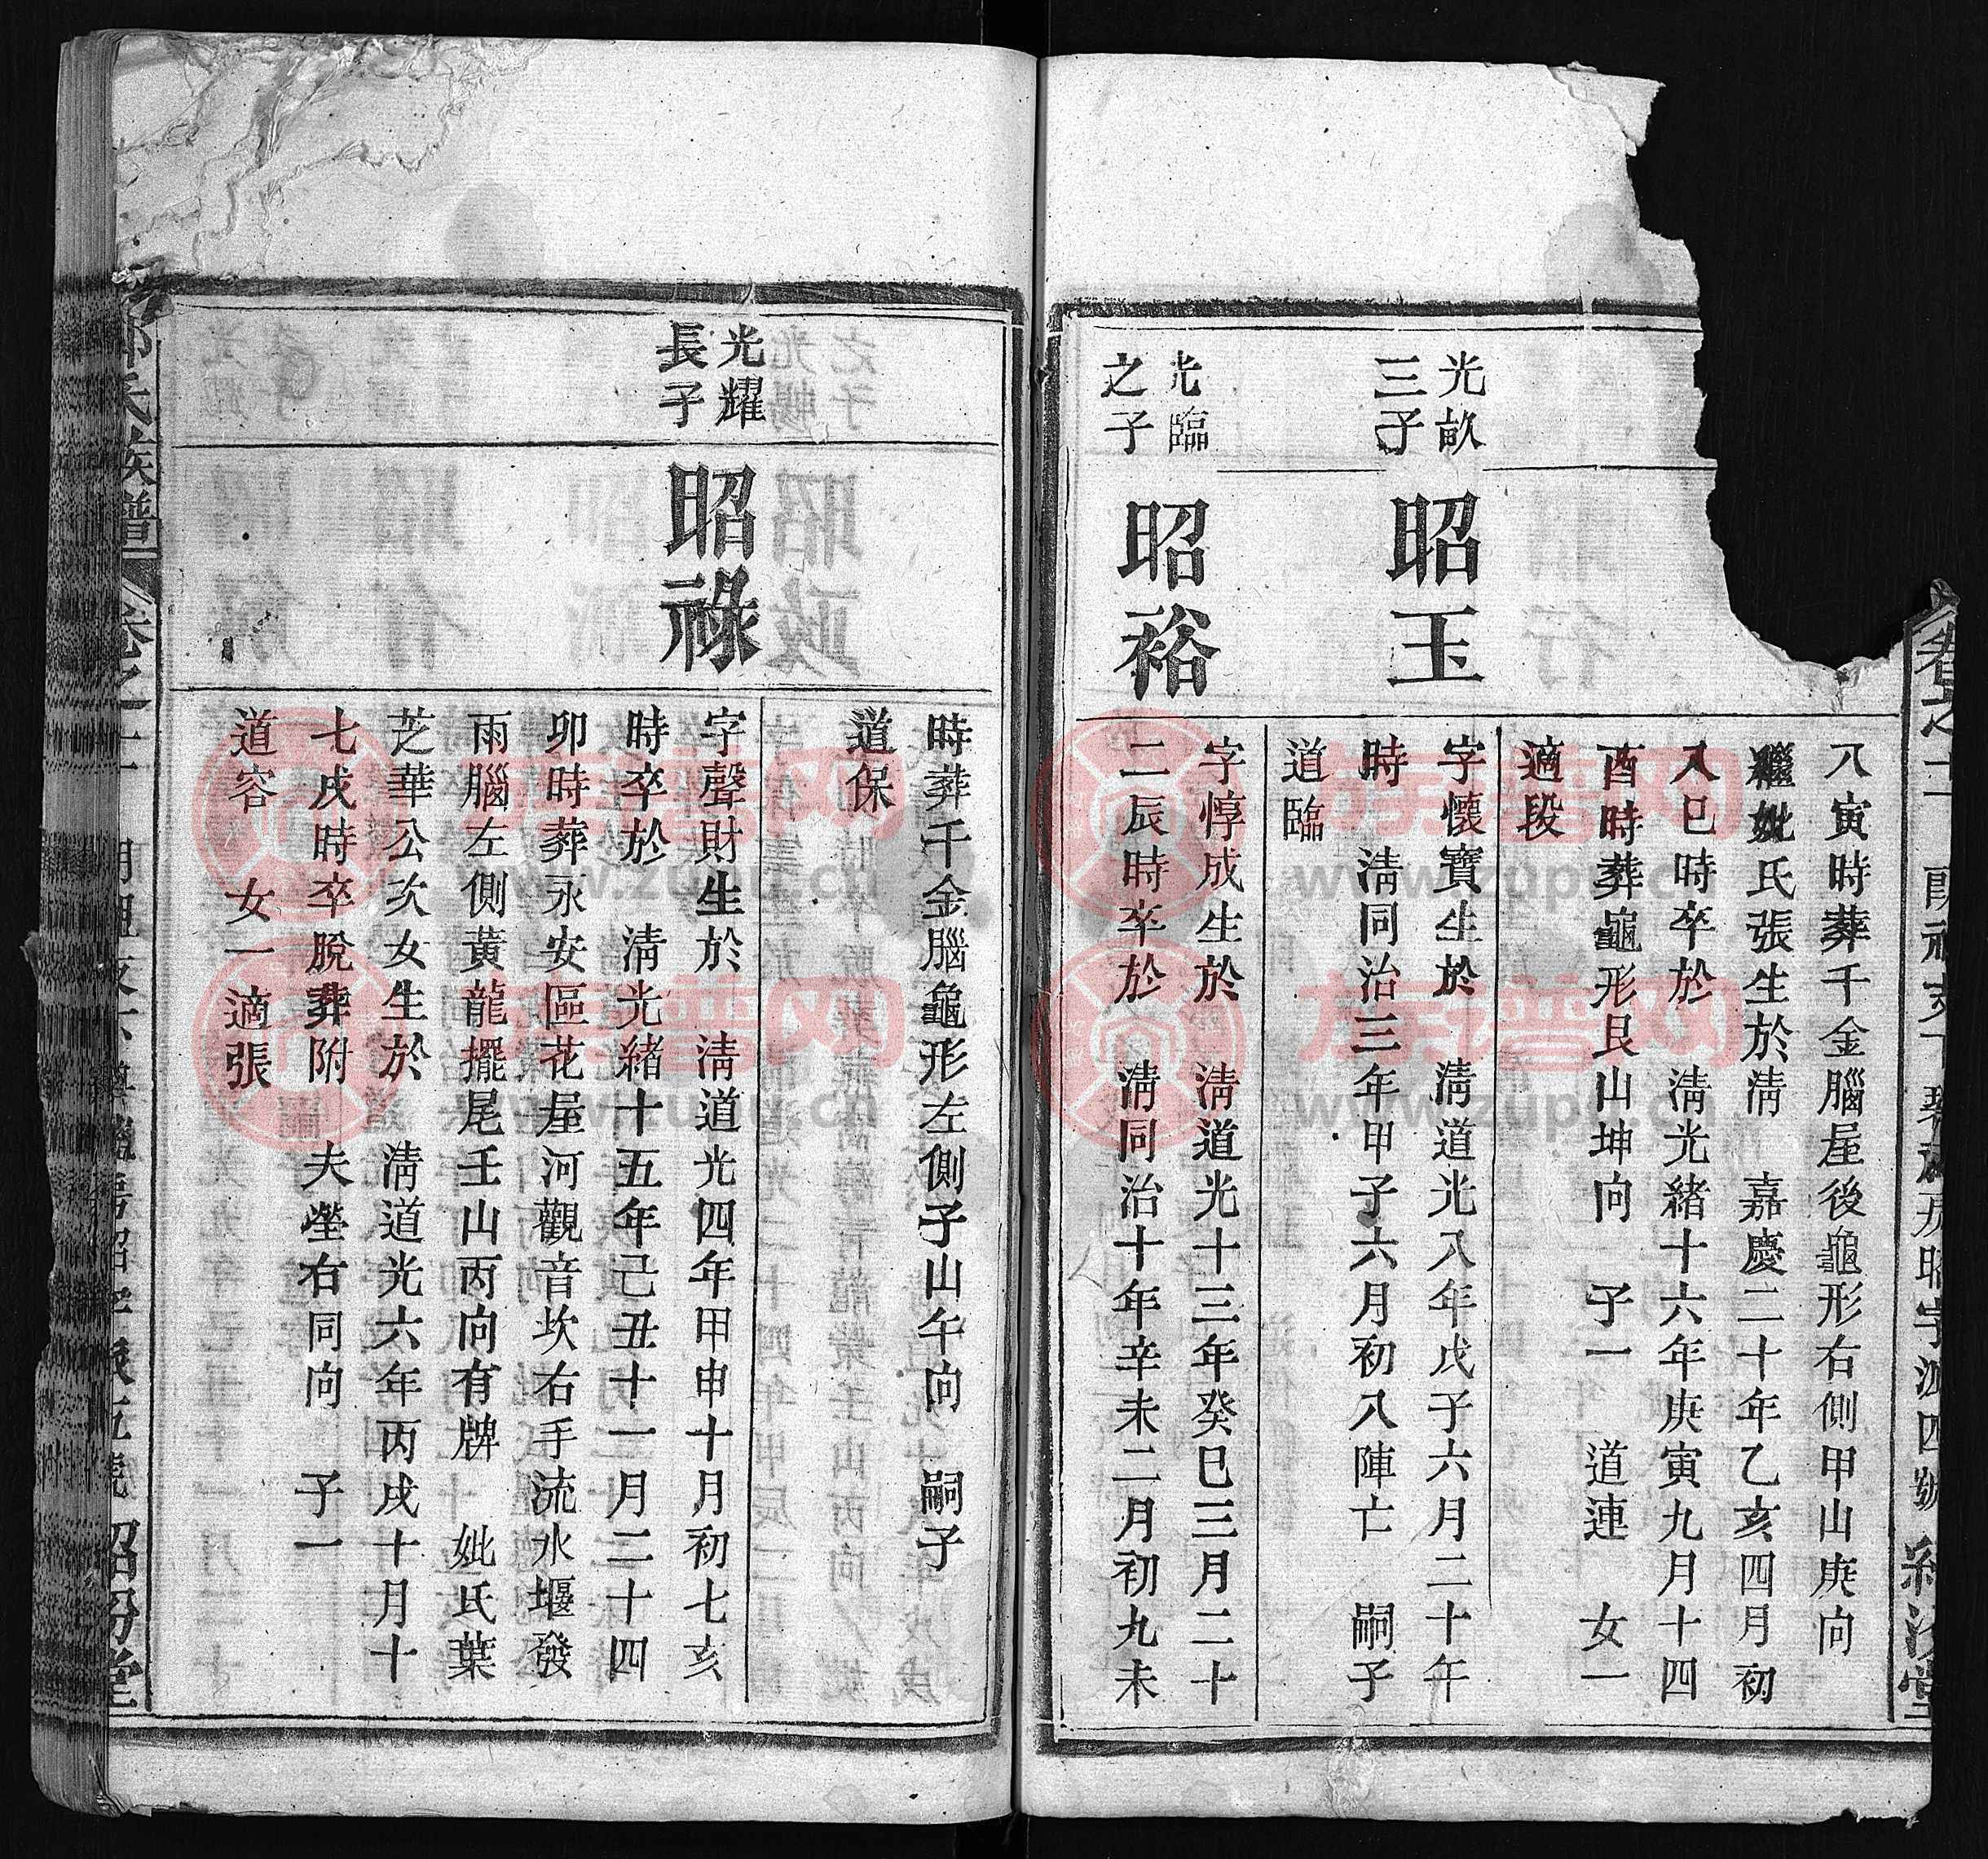 八寅時葬千金腦屋後龜形右側甲山庚向
繼妣氏張生於淸 嘉慶二十年乙亥四月初
入巳時卒於 淸光緒十六年庚寅九月十四
酉時葬龜形艮山坤向 子一 道連 女一
適段
光歆
三子
昭玉
字懷寶生於 淸道光入年戊子六月二十年
時 淸同治三年甲子六月初八陣亡 嗣子
道臨
光臨
之子
昭裕
字惇成生於 淸道光十三年癸巳三月二十
二辰時卒於 淸同治十年辛未二月初九未
時葬千金腦龜形左側子山午向 嗣子
道保
光耀
長子
昭祿
字聲財生於 淸道光四年甲申十月初七亥
時卒於 淸光緒十五年己丑十一月二十四
卯時葬永安區花屋河觀音坎右手流水堰發
雨腦左側黃龍擺尾壬山丙向有牌 妣氏葉
芝華公次女生於 淸道光六年丙戌十月十
七戌時卒脫葬附 夫塋右同向 子一
道容 女一適張
氏族譜 卷之
族譜网
www.zupu.cn
族譜网
www.zupu.cn
族譜网
www.zupu.cn
族譜网
www.zupu.cn